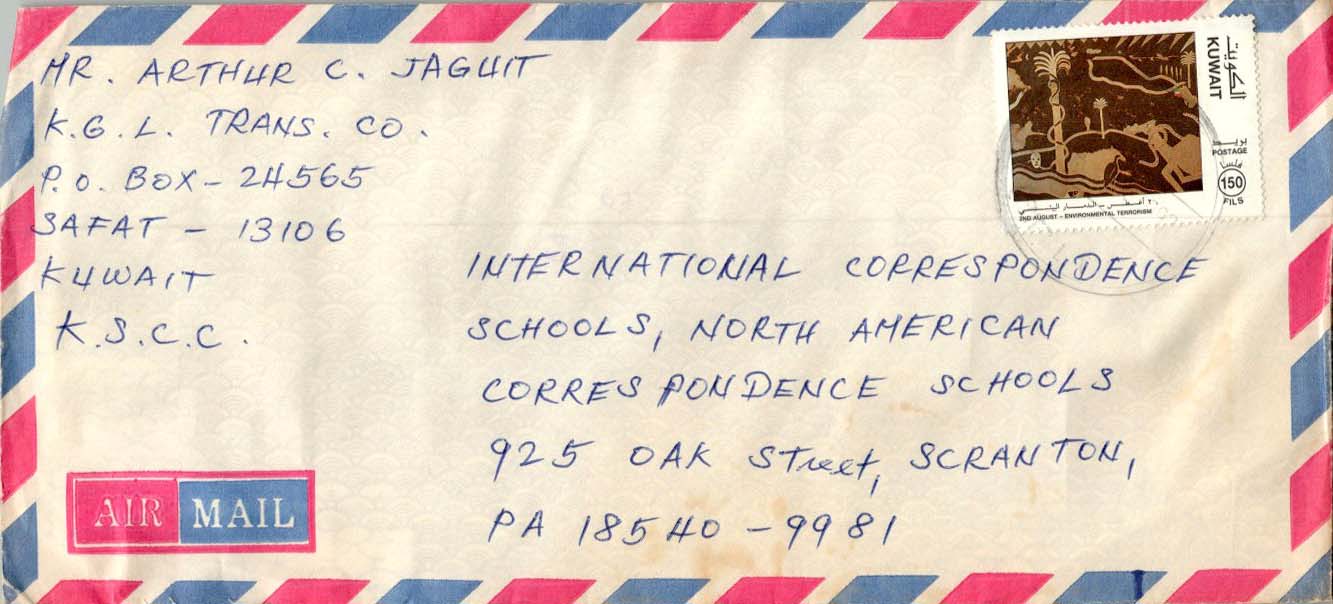 MR. ARTHUR C. JAGUIT
K.G.L. TRANS. CO.
P.O. BOX - 24565
SAFAT - 13106
KUWAIT
K.S.C.C.
الكويت
KUWAIT
بريد
POSTAGE
فلسا
150
FILS
2ND AUGUST - ENVIRONMENTAL TERRORISM
INTERNATIONAL CORRESPONDENCE
SCHOOLS, NORTH AMERICAN
CORRESPONDENCE SCHOOLS
925 OAK Street, SCRANTON,
PA 18540-9981
AIR MAIL